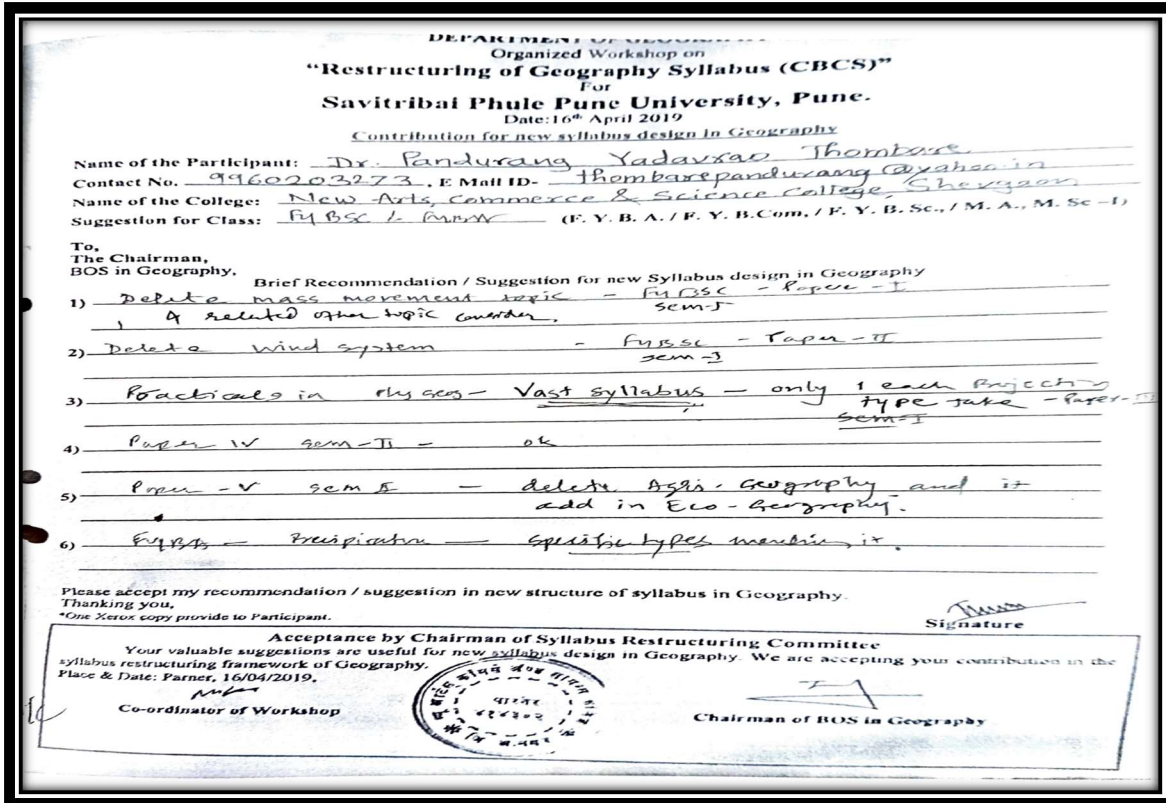 DEPARTMENT OF GEOGRAPHY
Organized Workshop on
“Restructuring of Geography Syllabus (CBCS)”
For
Savitribai Phule Pune University, Pune.
Date:16th April 2019
Contribution for new syllabus design in Geography
Name of the Participant: Dr. Pandurang Yadavrao Thombare
Contact No. 9960203273. E Mail ID- thombarepandurang@yahoo.in
Name of the College: New Arts, Commerce & Science College, Shevgaon
Suggestion for Class: FYBSC / FYBA (F. Y. B. A. / F. Y. B.Com, / F. Y. B. Sc., / M. A., M. Sc –I)
To,
The Chairman,
BOS in Geography.
Brief Recommendation / Suggestion for new Syllabus design in Geography
1) Delete mass movement topic - FYBSC - Paper - I
, & related other topic consider. Sem-I
2) Delete wind system - FYBSC - Paper - II
Sem-I
3) Practicals in Phy Geog - Vast syllabus - only 1 each Projection
type take - Paper-III
Sem-I
4) Paper IV Sem-II - ok
5) Paper - V Sem II - delete Agri. Geography and it
add in Eco-Geography.
6) FYBA - Precipitation - specific types mention it.
Please accept my recommendation / suggestion in new structure of syllabus in Geography.
Thanking you,
*One Xerox copy provide to Participant.
Signature
Acceptance by Chairman of Syllabus Restructuring Committee
Your valuable suggestions are useful for new syllabus design in Geography. We are accepting your contribution in the
syllabus restructuring framework of Geography.
Place & Date: Parner, 16/04/2019.
पारनेर
Co-ordinator of Workshop
Chairman of BOS in Geography